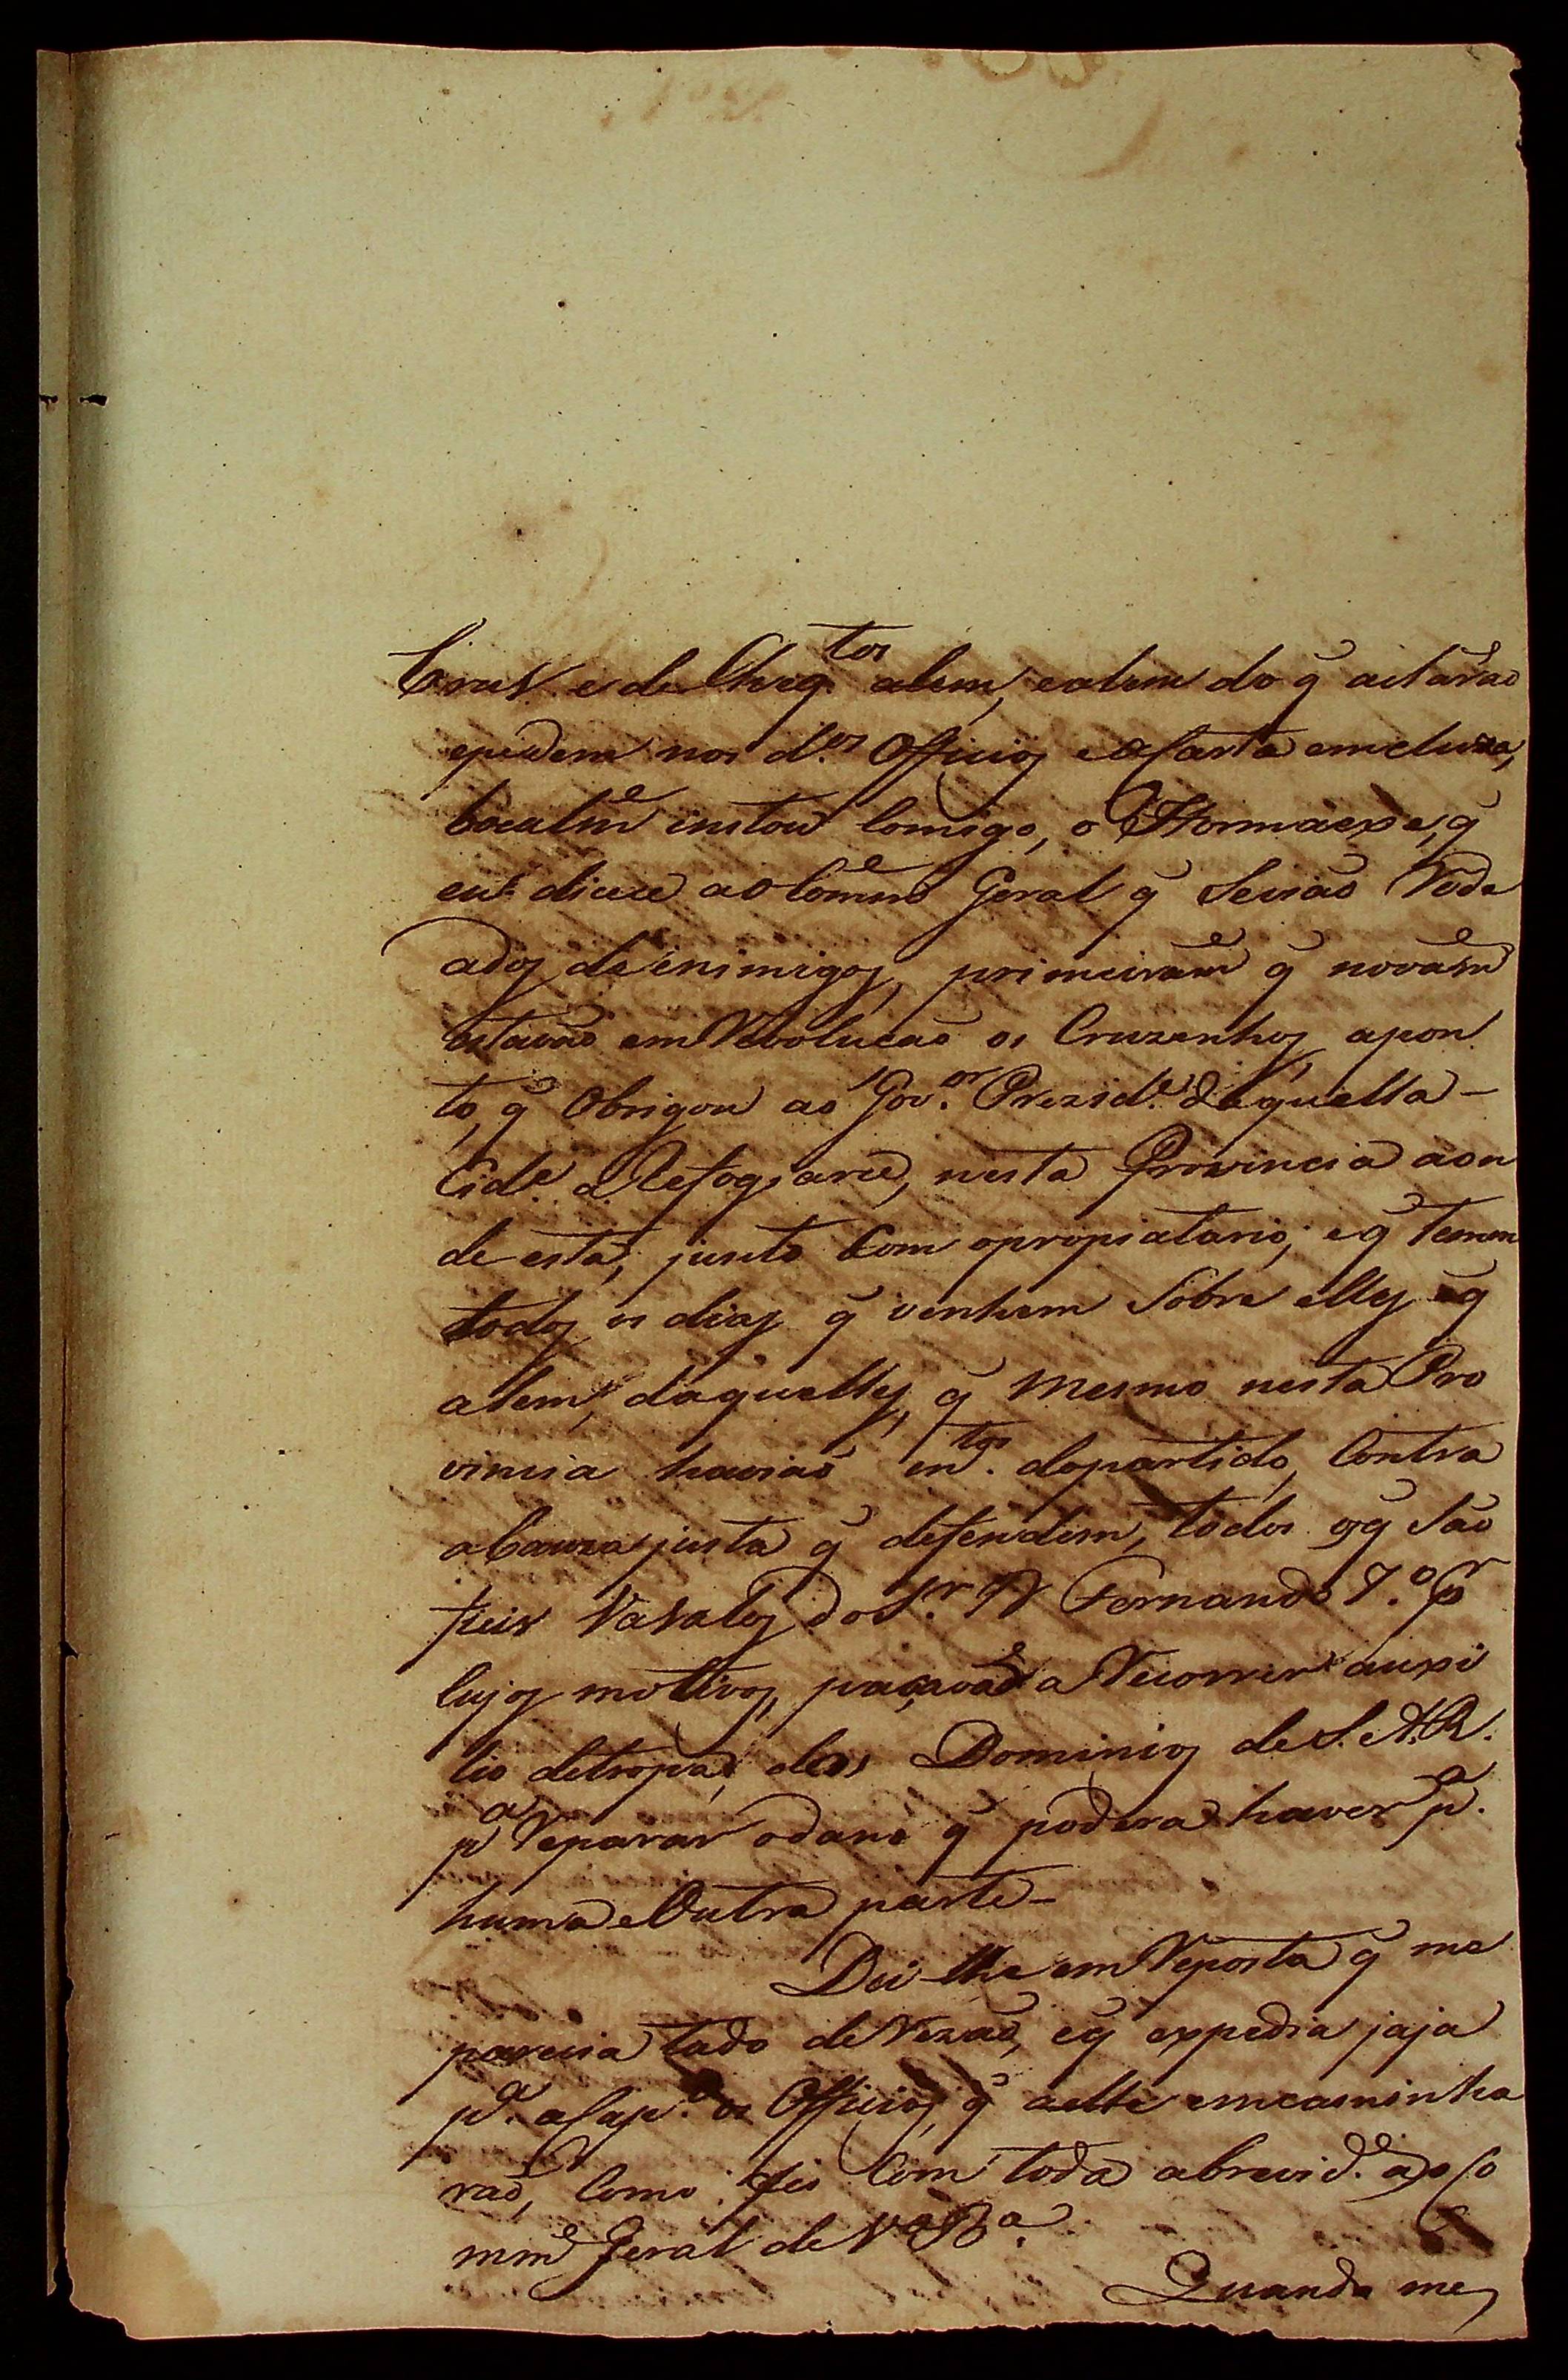 e de Cheq.tos alem, e alem do q̃ actárão
epedem nos d.os Officios e a Carta emcluza,
bocalm.e instou Comigo, o Hormaexe, q̃
eu dicece ao Comm.e Geral q̃ Seviáo Rode
ados de enimigos, primeiram.e q̃ novam.e
estavão em Revolucaõ os Cruzenhos, apon
to, q̃ Obrigou ao Gov.or Prezid.e daquella -
Cid.e a Refogiarce, nesta Provincia aon
de está, junto Com opropiatario; e q̃ temem
todos os dias q̃ venhem Sobre elles e q̃
alem, daquelles, q̃ Mesmo nesta Pro
vincia haviaõ m.tos dopartido, Contra
aCauza justa q̃ defendem, todos os q̃ Saõ
fieis Vasalos do S.r D Fernando 7.º Por
Cujos motivos, paçavaõ a Recorrer auxi
lio detropas, dos Dominios de S. A. R.
p.a Reparar odano q̃ podera haver p.a
huma e Outra parte -
Dei lhe em Reposta q̃ me
parecia tado de Rezaõ, e q̃ expedia jaja
p.a a Cap.al os Officios, q̃ aelle emcaminha
raõ, Como fis Com toda abrevid.e ao Co
mm.e Geral de V.a B.a
Quando me